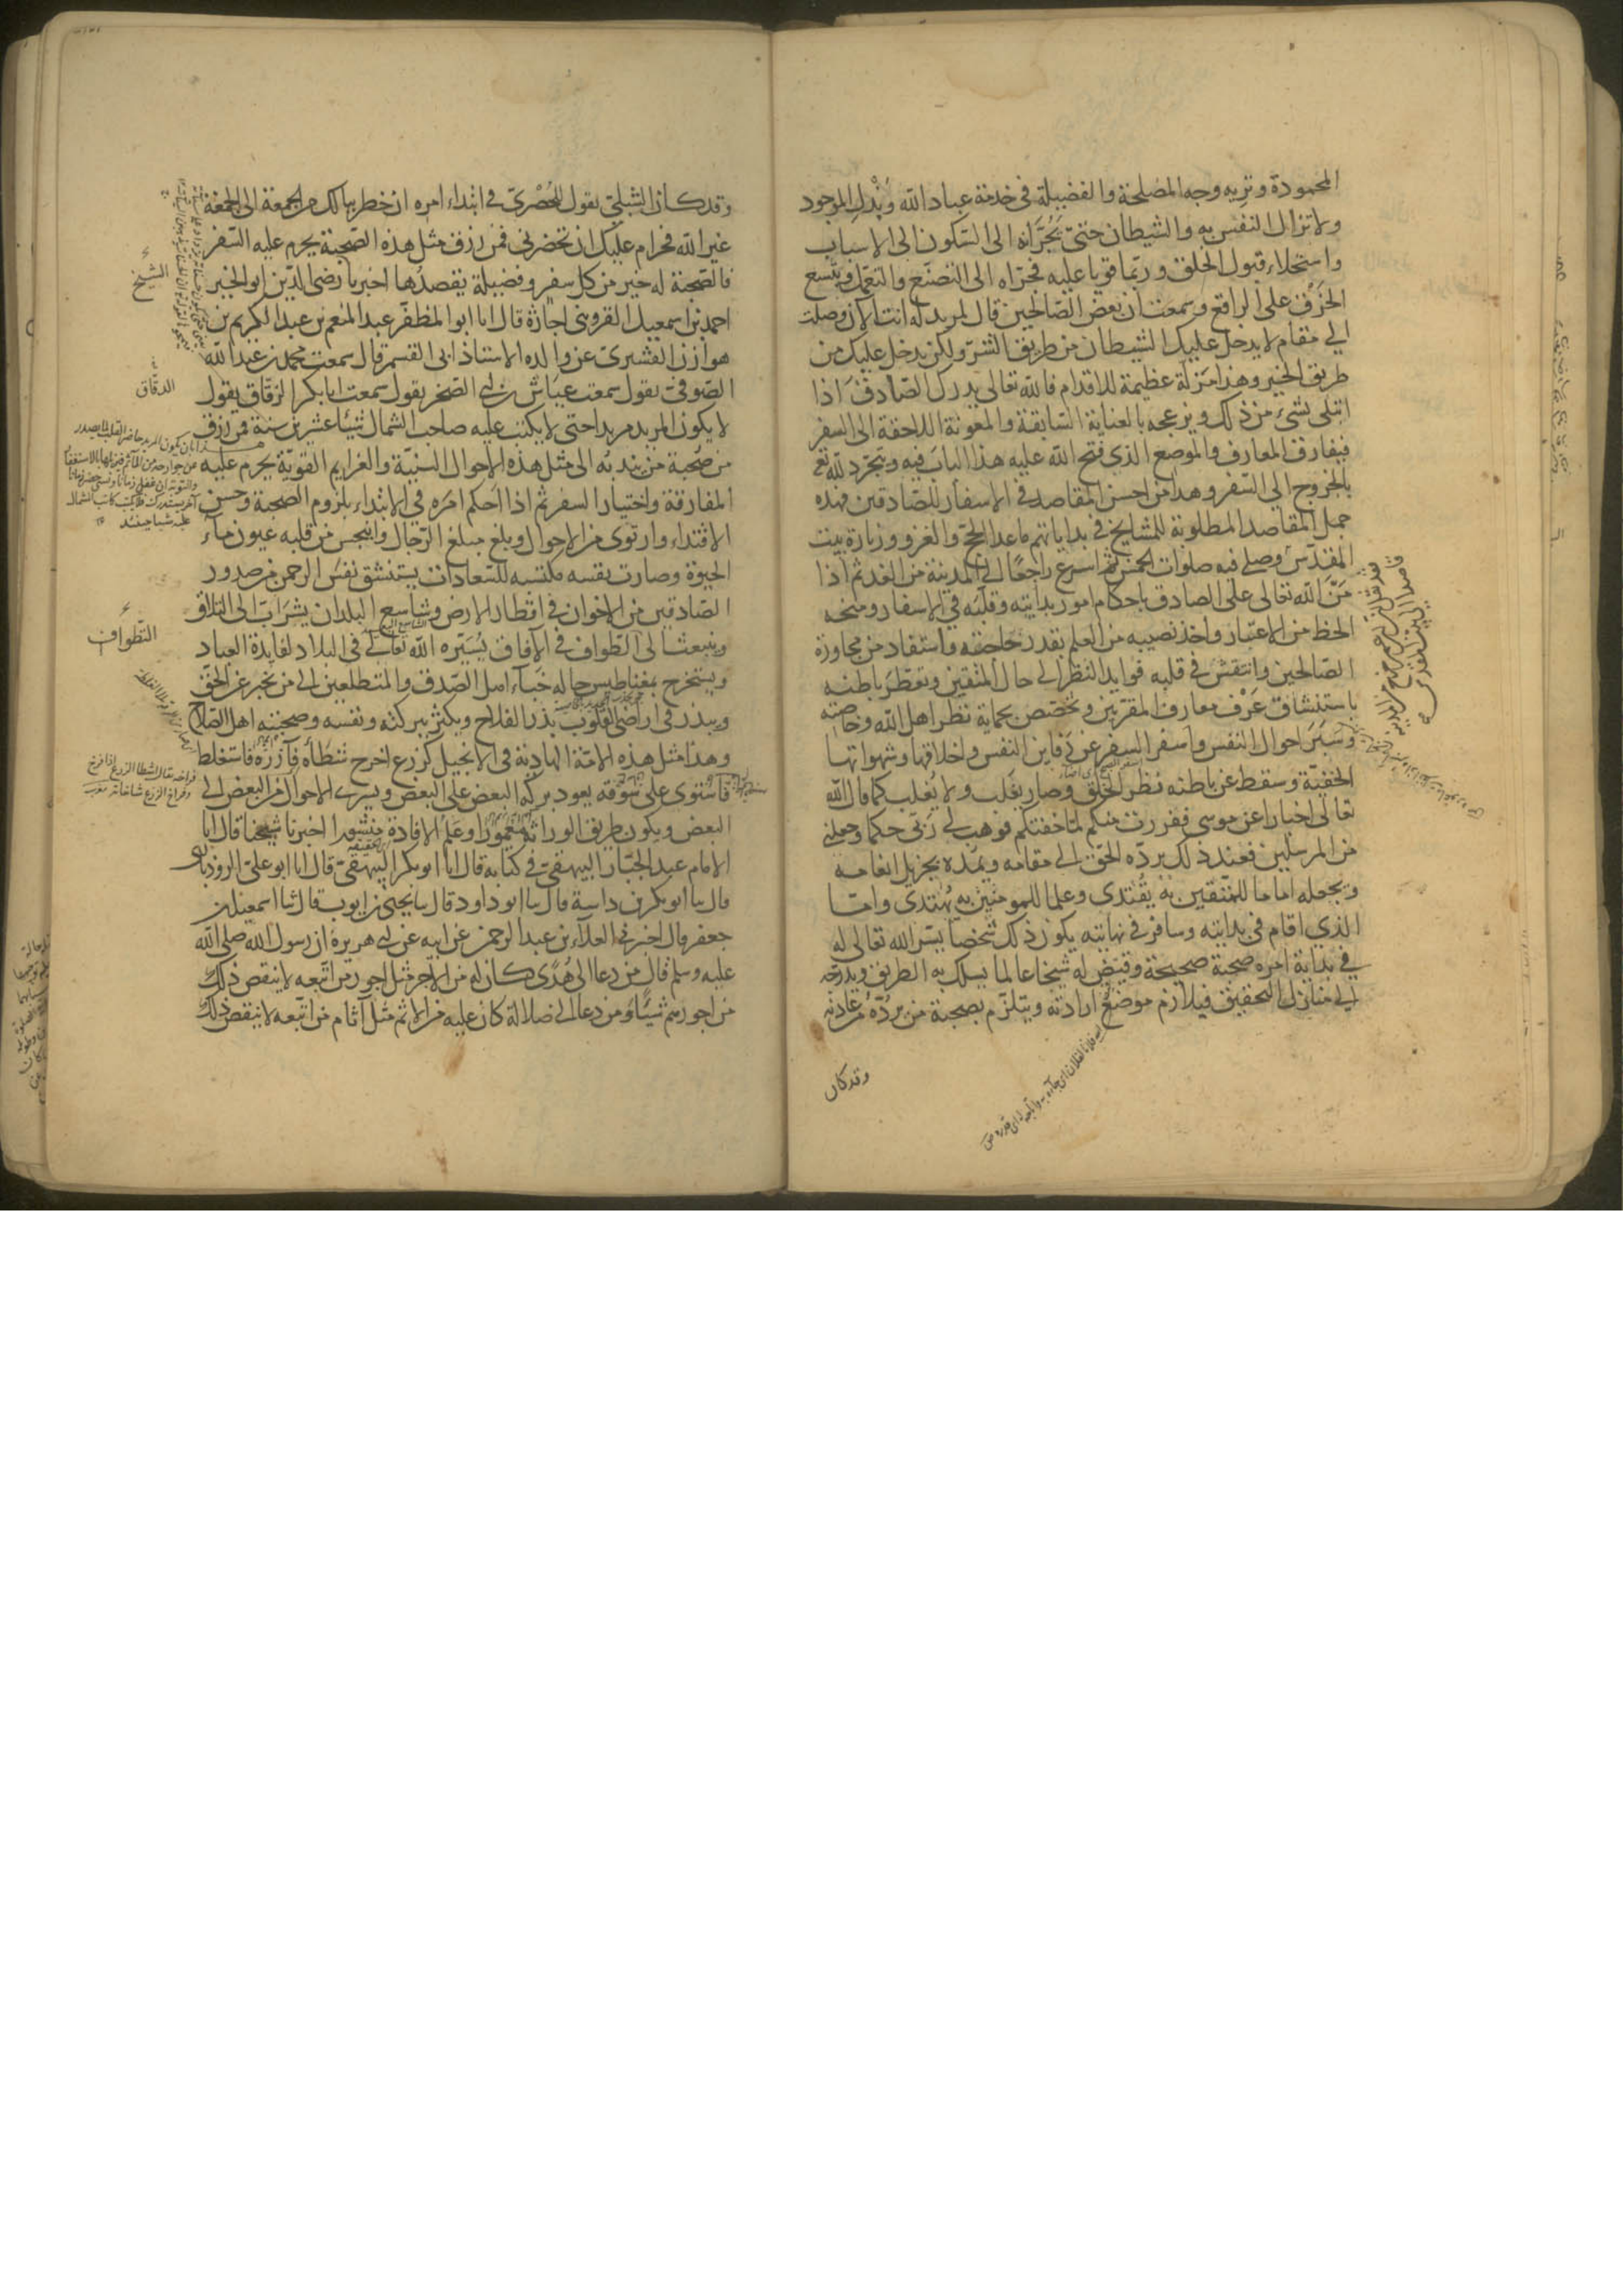 المحمودة وتريه وجه المصلحة والفضيلة في خدمة عباد الله وبذل الموجود
ولا تزال النفس به والشيطان حتى تجرّانه الى السكون الى الاسباب
واستحلاء قبول الخلق وربّما قويا عليه فجرّاه الى التصنّع والتعمّل ويتّسع
الخرق على الراقع وسمعت ان بعض الصالحين قال لمريد له انت الآن وصلت
الى مقام لا يدخل عليك الشيطان من طريق الشرّ ولكن يدخل عليك من
طريق الخير وهذا مزلّة عظيمة للاقدام فالله تعالى يدرك الصادق اذا
ابتلي بشيء من ذلك ويزعجه بالعناية السابقة والمعونة اللاحقة الى السفر
فيفارق المعارف والموضع الذي فتح الله عليه هذا الباب فيه ويتجرّد لله تع
بالخروج الى السفر وهذا من احسن المقاصد في الاسفار للصادقين فهذه
جمل المقاصد المطلوبة للمشايخ في بداياتهم ما عدا الحجّ والغزو وزيارة بيت
المقدّس وصلى فيه صلوات الخمس ثم اسرع راجعًا الى المدينة من الغد ثم اذا
منّ الله تعالى على الصادق باحكام امور بدايته وقلبه في الاسفار ومنحه
الحظ من الاعتبار واخذ نصيبه من العلم بقدر حاجته واستفاد من مجاورة
الصالحين وانتقش في قلبه فوايد النظر الى حال المتقين وتعطّر باطنه
باستنشاق عَرْف معارف المقربين وتحصّن بحماية نظر اهل الله وخاصته
وسبر احوال النفس واسفر السفر عن دفاين النفس واخلاقها وشهواتها
الخفيّة وسقط عن باطنه نظر الخلق وصار يغلب ولا يُغلب كما قال الله
تعالى اخبارا عن موسى ففررت منكم لمّا خفتكم فوهب لي ربّي حكما وجعلني
من المرسلين فعند ذلك يردّه الحقّ الى مقامه ويمدّه بجزيل انعامه
ويجعله اماما للمتّقين به يُقتدى وعلما للمومنين به يُهتدى وامّا
الذي اقام في بدايته وسافر في نهايته يكون ذلك شخصا يسّر الله تعالى له
في بداية امره صحبة صحيحة وقيّض له شيخا عالما يسلك به الطريق ويدرجه
الى منازل التحقيق فيلازم موضع ارادته ويلتزم بصحبة من يردّه عن عادته
وقد كان
وقد كان الشبلي يقول للحُصْري في ابتداء امره ان خطر ببالك من الجمعة الى الجمعة
غير الله فحرام عليك ان تحضرني فمن رزق مثل هذه الصحبة يحرم عليه السفر
فالصحبة له خير من كل سفر وفضيلة يقصدها اخبرنا رضي الدين ابو الخير
احمد بن اسمعيل القزويني اجازة قال انا ابو المظفّر عبد المنعم بن عبد الكريم بن
هوازن القشيري عن والده الاستاذ ابي القسم قال سمعت محمد بن عبد الله
الصوفي يقول سمعت عيّاش بن ابي الصخر يقول سمعت ابا بكر الزقّاق يقول
لا يكون المريد مريدا حتى لا يكتب عليه صاحب الشمال شيئا عشرين سنة فمن رزق
من صُحبة من يندبه الى مثل هذه الاحوال السنيّة والعزايم القويّة يحرم عليه
المفارقة واختيار السفر ثم اذا احكم امره في الابتداء بلزوم الصحبة وحسن
الاقتداء وارتوى من الاحوال وبلغ مبلغ الرجال وانبجس من قلبه عيون ماء
الحيوة وصارت نفسه مكتسبه للسعادات يستنشق نفس الرحمن من صدور
الصادقين من الاخوان في اقطار الارض وشاسع البلدان يشرابّ الى التلاق
وينبعث الى التطواف في الآفاق يُسيّره الله تعالى في البلاد لفايدة العباد
ويستخرج بمغناطيس حاله خباء اهل الصدق والمتطلعين الى من يخبر عن الحقّ
ويبذر في اراضي القلوب بذر الفلاح ويكثر ببركته ونفسه وصحبته اهل الصلاح
وهذا مثل هذه الامّة الهادية في الانجيل كزرع اخرج شطأه فآزره فاستغلظ
فاستوى على سُوقه يعود بركة البعض على البعض ويسري الاحوال من البعض الى
البعض ويكون طريق الوراثة معمورًا وعَلَم الافادة منشورا اخبرنا شيخنا قال انا
الامام عبد الجبّار البيهقي في كتابه قال انا ابو بكر البيهقي قال انا ابو علي الروذباري
قال نا ابو بكر بن داسة قال نا ابو داود قال نا يحيى بن ايوب قال ثنا اسمعيل بن
جعفر قال اخبرني العلاء بن عبد الرحمن عن ابيه عن ابي هريرة ان رسول الله صلى الله
عليه وسلم قال من دعا الى هُدًى كان له من الاجر مثل اجور من اتبعه لا ينقص ذلك
من اجورهم شيئا ومن دعا الى ضلالة كان عليه من الاثم مثل آثام من اتبعه لا ينقص ذلك
الشيخ
الدقّاق
التطواف